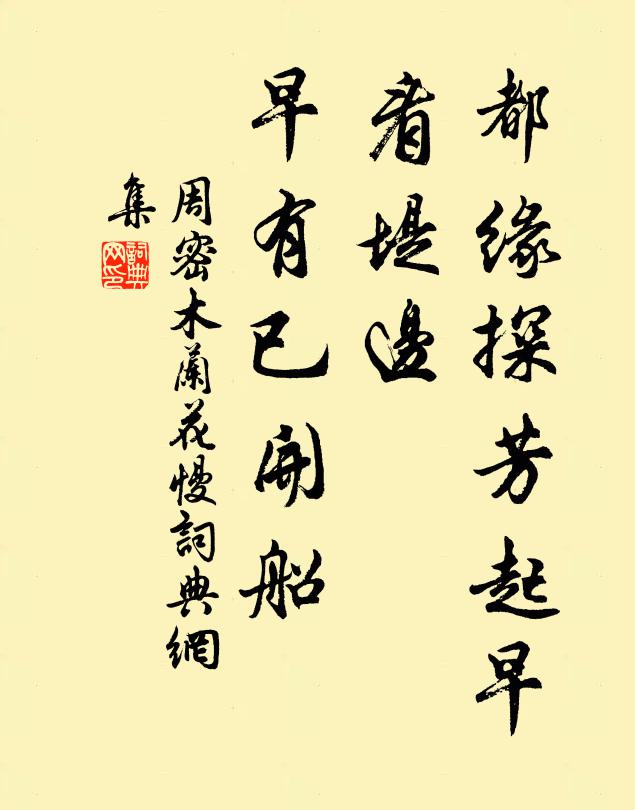 都缘探芳起早
看堤邊
早有已開船
周密木蘭花慢詞典網
集
詞典網印